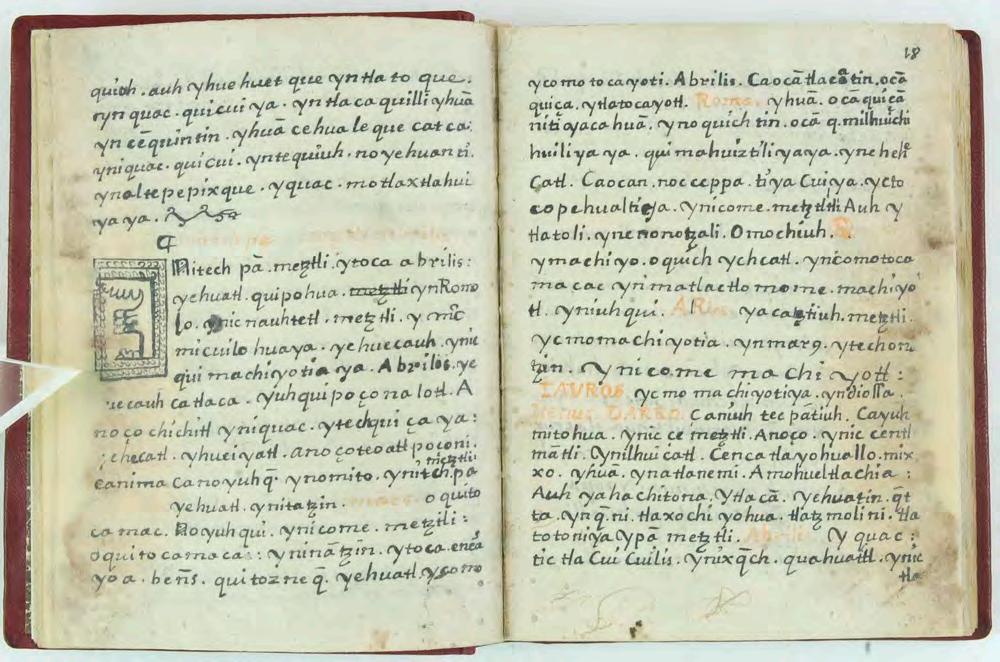 quioh. auh yhue huet que yn tla to que.
yn quac. qui cui ya. yn tla ca quilli yhuā
yn cēquin tin. yhuā ce hua le que cat ca:
yniquac. qui cui. yn te quiuh. no ye huan ti.
yn al te pe pix que. yquac. mo tlax tla hui
ya ya.
Nitech pā. metztli. ytoca abrilis:
yehuatl. qui po hua. metztli yn Romo
lo. ynic nauh tetl. metztli. y nic
mi cuilo hua ya. ye hue cauh. ynic
qui ma chi yo tia ya. Abrilis. ye
ue cauh ca tla ca. yuh qui po ço na lotl. A
no ço chi chitl yni quac. y tech qui ça ya:
ehecatl. yhuei yatl. ano ço teo atl po ço ni.
metztli
eanima ca no yuh q̄. yno mito. yni tech. pa
yehuatl. yni ta tzin. maes. o quito
ca mac. No yuh qui. yni come. metztli:
o qui to ca ma ca: yni nā tzin. ytoca. eneā
yo a. beñs. qui toz ne q̄. yehuatl. y como
18
y como to ca yoti. Abrilis. Ca o cā tla ca tin. o cā
qui ça. y tla to ca yotl. Roma. yhuā. o cā qui çā
niti aya ca huā. yno quich tin. o cā q. milhuichi
huili ya ya. qui ma huiz tili ya ya. yne hehe
catl. Ca o can. noc ceppa. ti ya Cui ya. y cto
co pe hual ti ya. yni come. metztli Auh y
tla to li. yne no no tzali. O mo chiuh.
y ma chi yo. o quich ych catl. yni como to ca
ma ca c yn i ma tlac tlo mo me. ma chi yo
tl. yni uh qui. ARies. ya ca tiuh. metztli.
yc mo ma chi yo tia. yn marҫ. y te chon
tzin. y ni co me ma chi yotl:
TAUROS yc mo ma chi yo ti ya. yn diossa.
Uenus DARSO. Ca niuh tec pa tiuh. Ca yuh
mi to hua. ynic ce metztli. Ano ço. ynic centl
ma tli. ynil hui catl. Cen ca tla yo hua llo. mix
xo. yhuā. yna tla ne mi. A mo huel tla chia:
Auh ya ha chi to na. y tla cā. yehua tin. q̄t
ta. yn q̄. ni. tla xo chi yo hua. tla tz mo li ni. tla
to to ni ya y pā metztli. Abrili. y quac:
tic tla Cui Cui lis. ynix q̄ch. qua huitl. ynic
tla